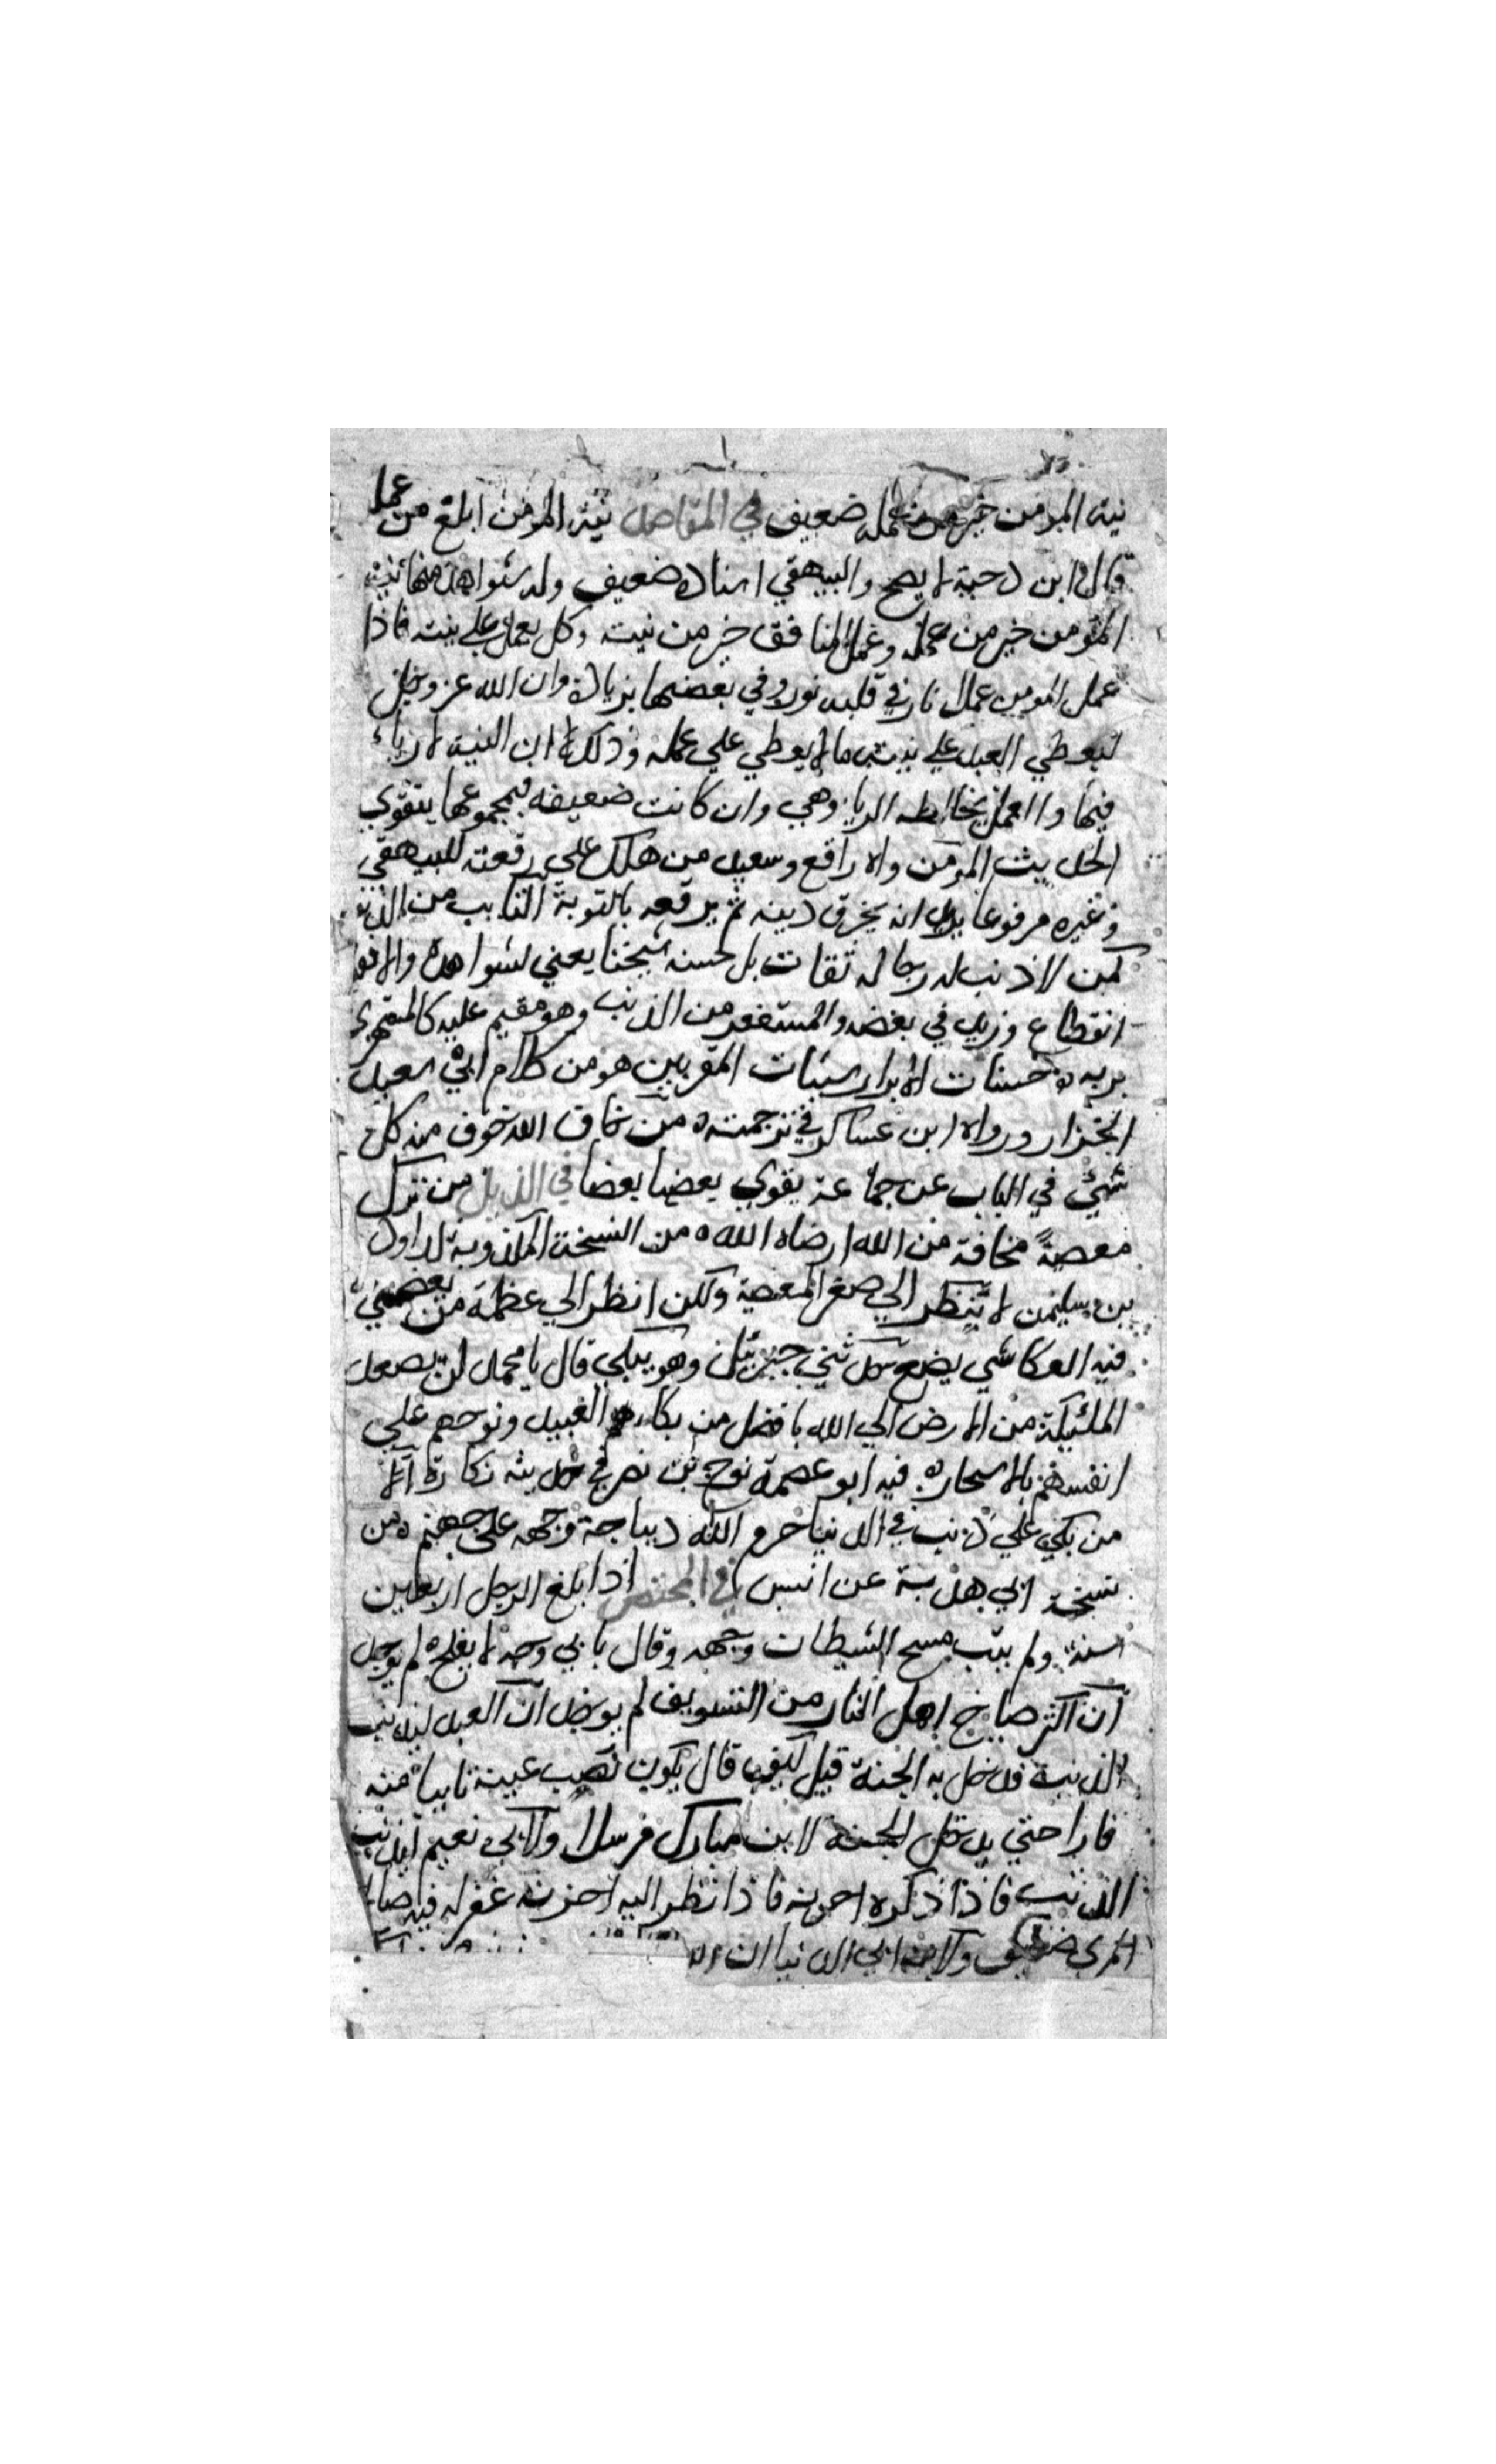 نية المؤمن خير من عمله ضعيف في المقاصد نية المومن ابلغ من عمله
قال ابن دحية لا يصح والبيهقي اسناده ضعيف وله شواهد منها نية
المؤمن خير من عمله وعمل المنافق خير من نيته وكل يعمل على نيته فاذا
عمل المومن عملا نار في قلبه نور وفي بعضها بزيادة وان الله عز وجل
ليعطي العبد علي نيته ما لا يعطي علي عمله وذلك ان النية لا رياء
فيها والعمل يخالطه الريا وهي وان كانت ضعيفه فبمجموعها يتقوي
الحديث المومن واه راقع وسعيد من هلك على رقعته للبيهقي
وغيره مرفوعا يريد انه يخرق دينه ثم يرقعه بالتوبة التايب من الذنب
كمن لا ذنب له رجاله ثقات بل حسنه شيخنا يعني لشواهده والا فهو
انقطاع وزيد في بعضه والمستغفر من الذنب وهو مقيم عليه كالمستهزي
بربه حسنات الابرار سيئات المقربين هو من كلام ابي سعيد
الخزار ورواه ابن عساكر في ترجمته من خاف الله خوف منه كل
شيئ في الباب عن جماعة يقوي بعضها بعضا في الذيل من ترك
معصية مخافة من الله ارضاه الله من النسخة المكذوبة لداود
بن سليمن لا تنظر الي صغر المعصية ولكن انظر الي عظمة من تعصي
فيه العكاشي يضع حدثني جبرئيل وهو يبكي قال يا محمد لن يصعد
الملئيكة من الارض الي الله بافضل من بكاء العبيد ونوحهم علي
انفسهم بالاسحار فيه ابو عصمة نوح بن نصر في حديثه نكارة
من بكي علي ذنب في الدنيا حرم الله ديباجة وجهه على جهنم من
نسخة ابي هدبة عن انس في المختصر اذا بلغ الرجل اربعين
سنة ولم يتب مسح الشيطان وجهه وقال بابي وجه لا يفلح لم يوجد
ان اكثر صياح اهل النار من التسويف لم يوجد ان العبد ليذنب
الذنب فدخل به الجنة قيل كيف قال يكون نصب عينه تايبا منه
فارا حتي يدخل الجنة لابن مبارك مرسلا ولابي نعيم ليذنب
الذنب فاذا ذكره احزنه فاذا نظر اليه احزنه غفر له فيه صالح
المري ضعيف ولابن ابي الدنيا ان